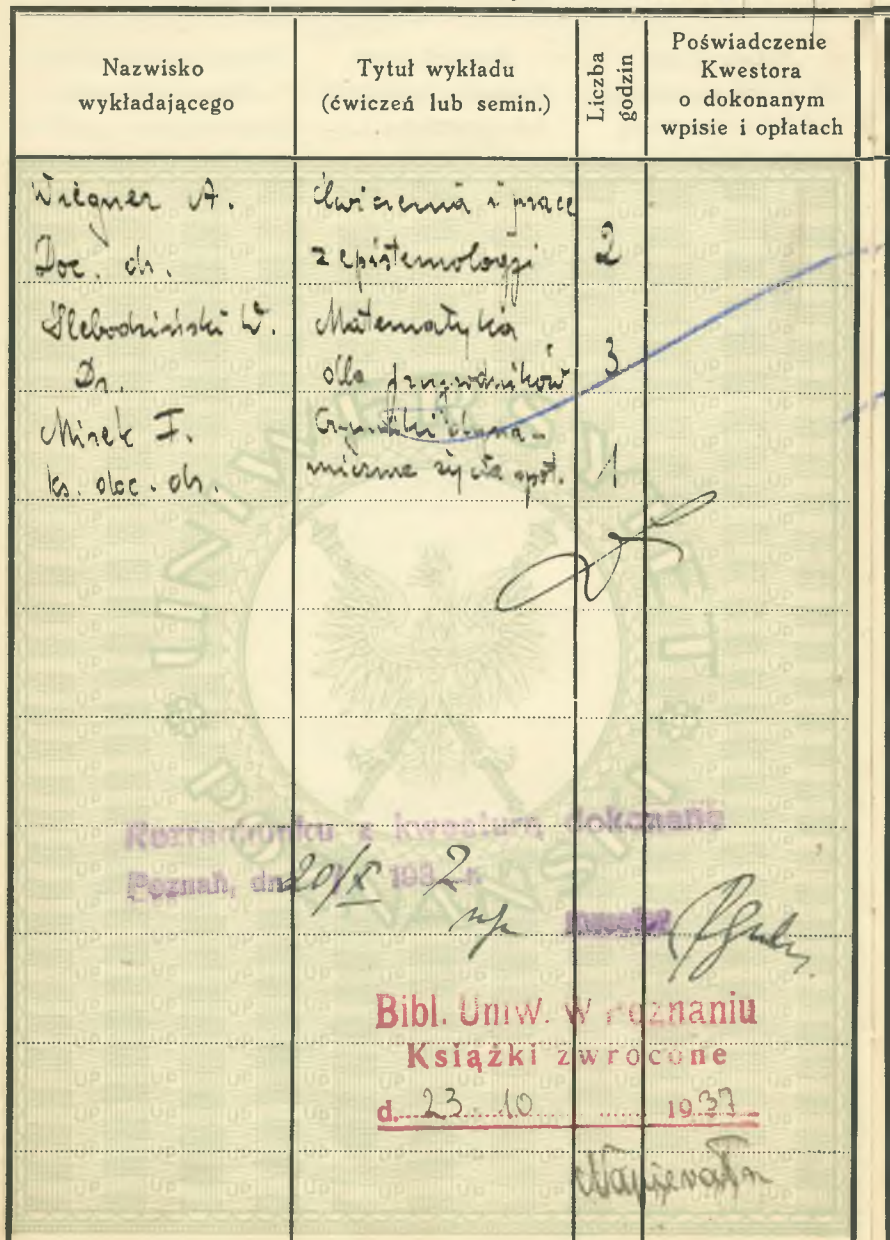 Nazwisko
wykładającego
Tytuł wykładu
(ćwiczeń lub semin.)
Liczba
godzin
Poświadczenie
Kwestora
o dokonanym
wpisie i opłatach
Wiegner A.
Doc. dr.
Ćwiczenia i prace
z epistemologji
2
Ślebodziński W.
Dr.
Matematyka
dla przyrodników
3
Mirek F.
ks. doc. dr.
Czynniki dyna-
miczne życia społ.
1
UNIWERSYTET POZNAŃSKI
Rozrachunku z kwesturą dokonano
Poznań, dn. 20/X 193 r.
Kwestor
Bibl. Uniw. w Poznaniu
Książki zwrócone
d. 23. 10 1937